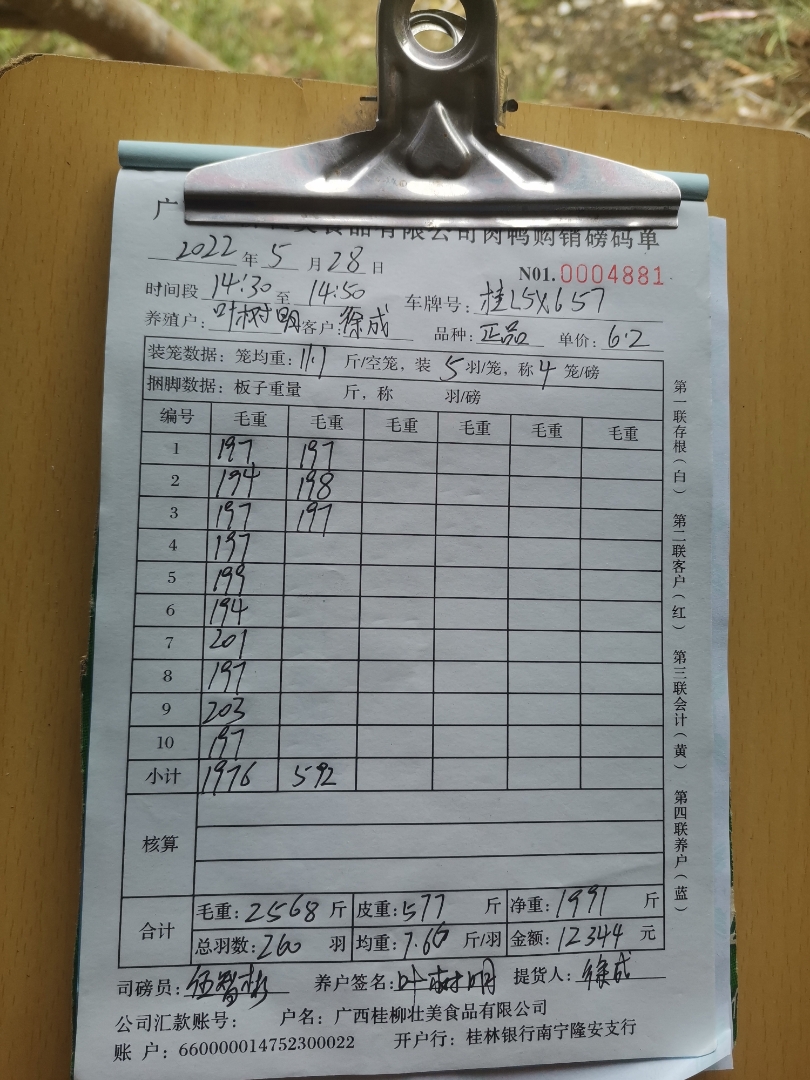 广 美食品有限公司肉鸭购销磅码单
2022年5月28日
N01.0004881
时间段14:30至14:50 车牌号:桂L5X657
养殖户:叶树明客户:徐成 品种:正品 单价:6.2
装笼数据:笼均重:11.1斤/空笼,装5羽/笼,称4笼/磅
捆脚数据:板子重量 斤,称 羽/磅
编号 毛重 毛重 毛重 毛重 毛重 毛重
1 197 197
2 194 198
3 197 197
4 197
5 199
6 194
7 201
8 197
9 203
10 197
小计 1976 592
核算
合计 毛重:2568斤 皮重:577斤 净重:1991斤
总羽数:260羽 均重:7.66斤/羽 金额:12344元
司磅员:伍智彬 养户签名:叶树明 提货人:徐成
公司汇款账号: 户名:广西桂柳壮美食品有限公司
账 户:660000014752300022 开户行:桂林银行南宁隆安支行
第一联存根(白) 第二联客户(红) 第三联会计(黄) 第四联养户(蓝)